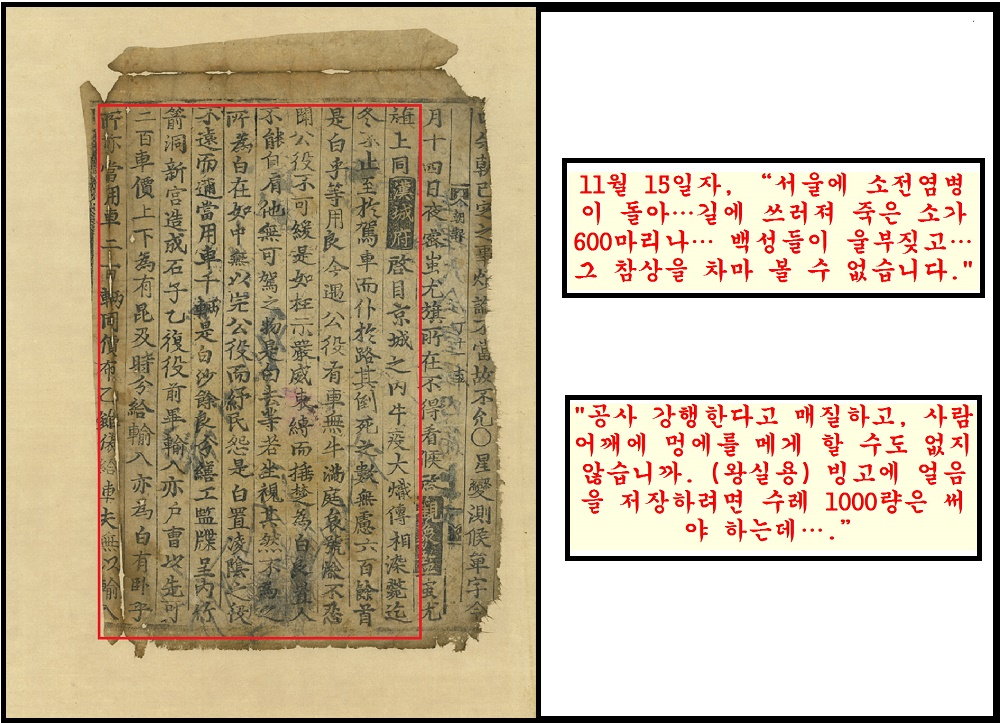 之事
故不允○星變測候單字今
月十四日夜 蚩尤旗所在不得看候 蚩尤
旗上同漢城府啓目京城之內牛疫大熾傳相染斃迄
冬不止至於駕車而仆於路其倒死之數無慮六百餘首
是白乎等用良今遇公役有車無牛滿庭哀號慘不忍
聞公役不可緩是如枉示嚴威束縛而捶楚爲白良置人
不能自肩他無可駕之物是白去等若坐視其然不爲之
所爲白在如中無以完公役而紓民怨是白置凌陰之役
不遠而邇當用車千輛是白沙餘良 繕工監牒呈內竹
箭洞新宮造成石子乙復役前畢輸入亦戶曹以先可
二百車價上下爲有昆及時分給輸入亦爲白有臥乎
所亦當用車二百輛同價布乙 給車夫無以輸入
11월 15일자, “서울에 소전염병
이 돌아…길에 쓰러져 죽은 소가
600마리나… 백성들이 울부짖고…
그 참상을 차마 볼 수 없습니다."
"공사 강행한다고 매질하고, 사람
어깨에 멍에를 메게 할 수도 없지
않습니까. (왕실용) 빙고에 얼음
을 저장하려면 수레 1000량은 써
야 하는데….”